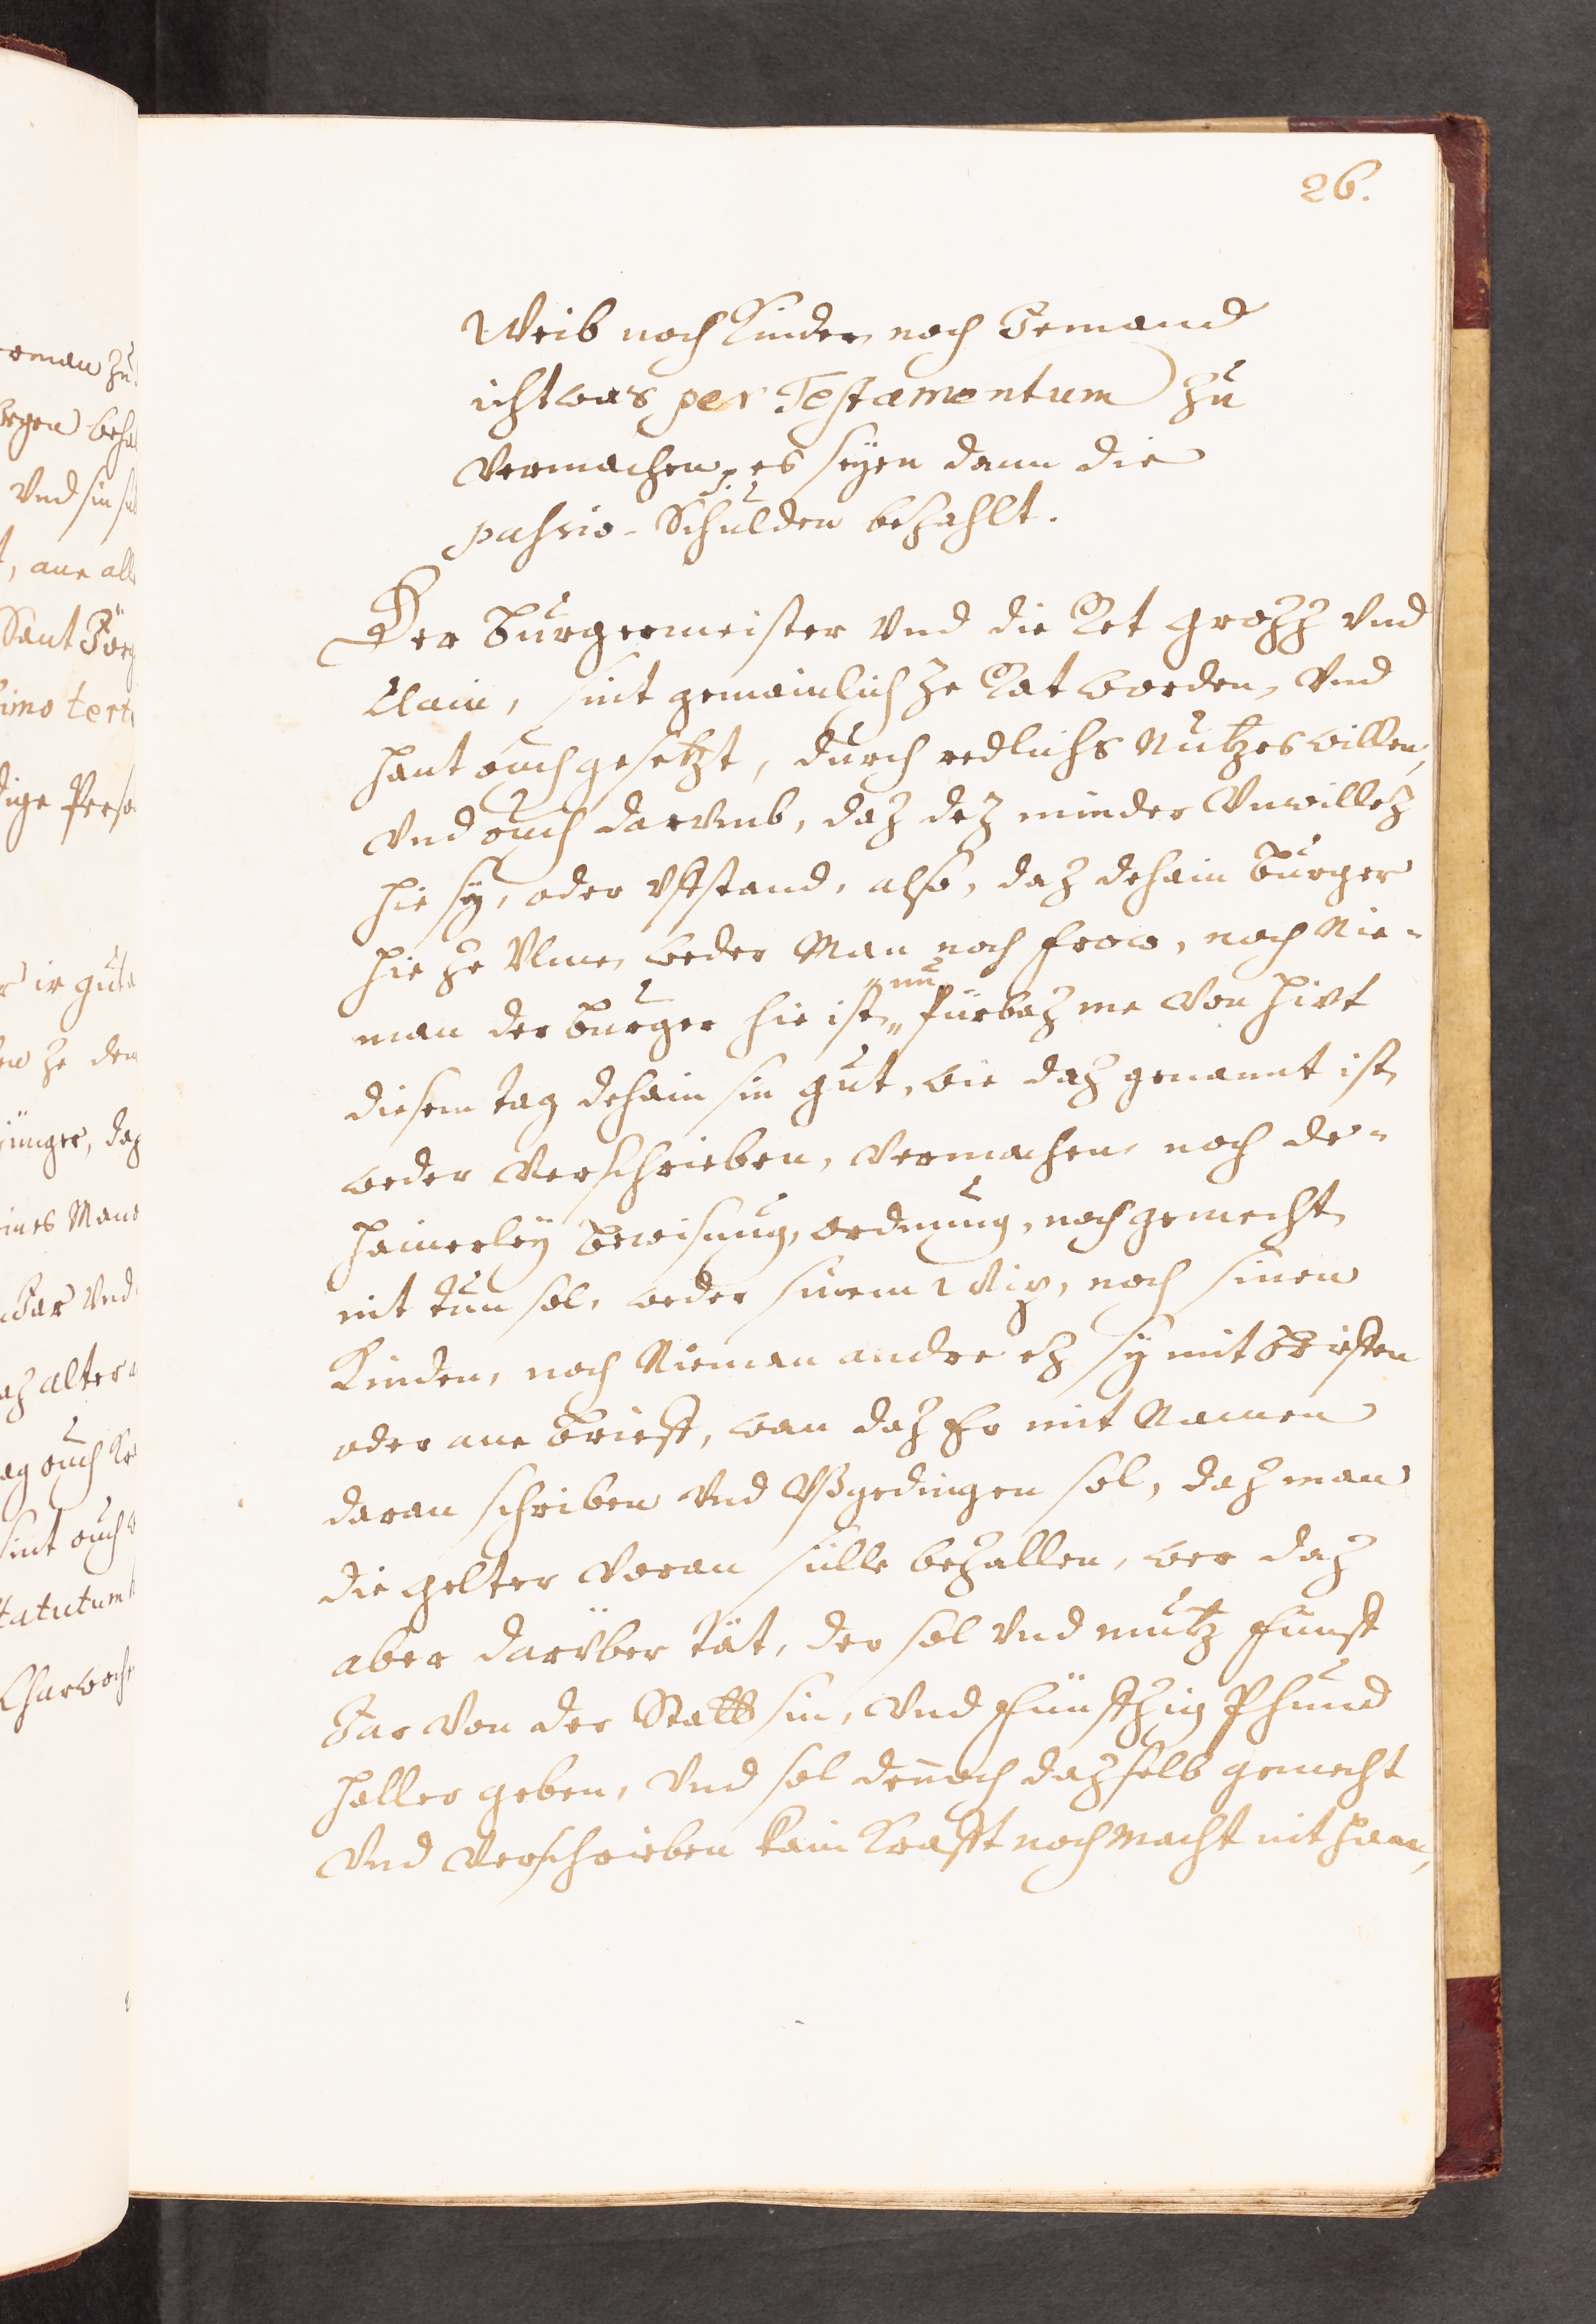 26.
Weib noch Kinder, noch Jemand
ichtwas per Testamentum zu
vermachen, es seyen dann die
passiv-Schulden bezahlt.
Der Burgermeister vnd die Ret grozz vnd
Clain, sint gemainlich ze Rat worden, vnd
hant ouch gesetzt, durch redlichs Nutzes willen,
vnd ouch darvmb, daz dez minder Vnwillez
hie sy, oder vfstand, also, daz dehain Burger
hie ze Vlme, weder Man noch frow, noch Nie-
man der Burger hie ist, „nu„ fürbaz me von hivt
diesem tag dehain sin gut, wie daz genannt ist,
weder verschrieben, vermachen, noch de-
hainerley Bewisung, ordnung, noch gemecht
nit tun sol, weder sinem Wip, noch sinen
Kinden, noch Nieman andre ez sy mit Brieffen
oder ane Brieff, wan daz Er mit Namen
daran schriben vnd vßgedingen sol, daz man
die gelter voran sülle bezallen, wer daz
aber darüber tät, der sol vnd mutz fünff
Jar von der Statt sin, vnd fünffzig Phund
haller geben, vnd sol dennoch dazselb gemecht
vnd verschrieben kain Krafft noch macht nit han,
oman zu
egen beha
vnd sin
, ane all
Sant Jörg
imo terti
dige Perso
ir gut
en ze den
jünger, daz
ines Mans
Jar vnd
az alter
ag ouch
sint ouch
tatutum
Charwoch